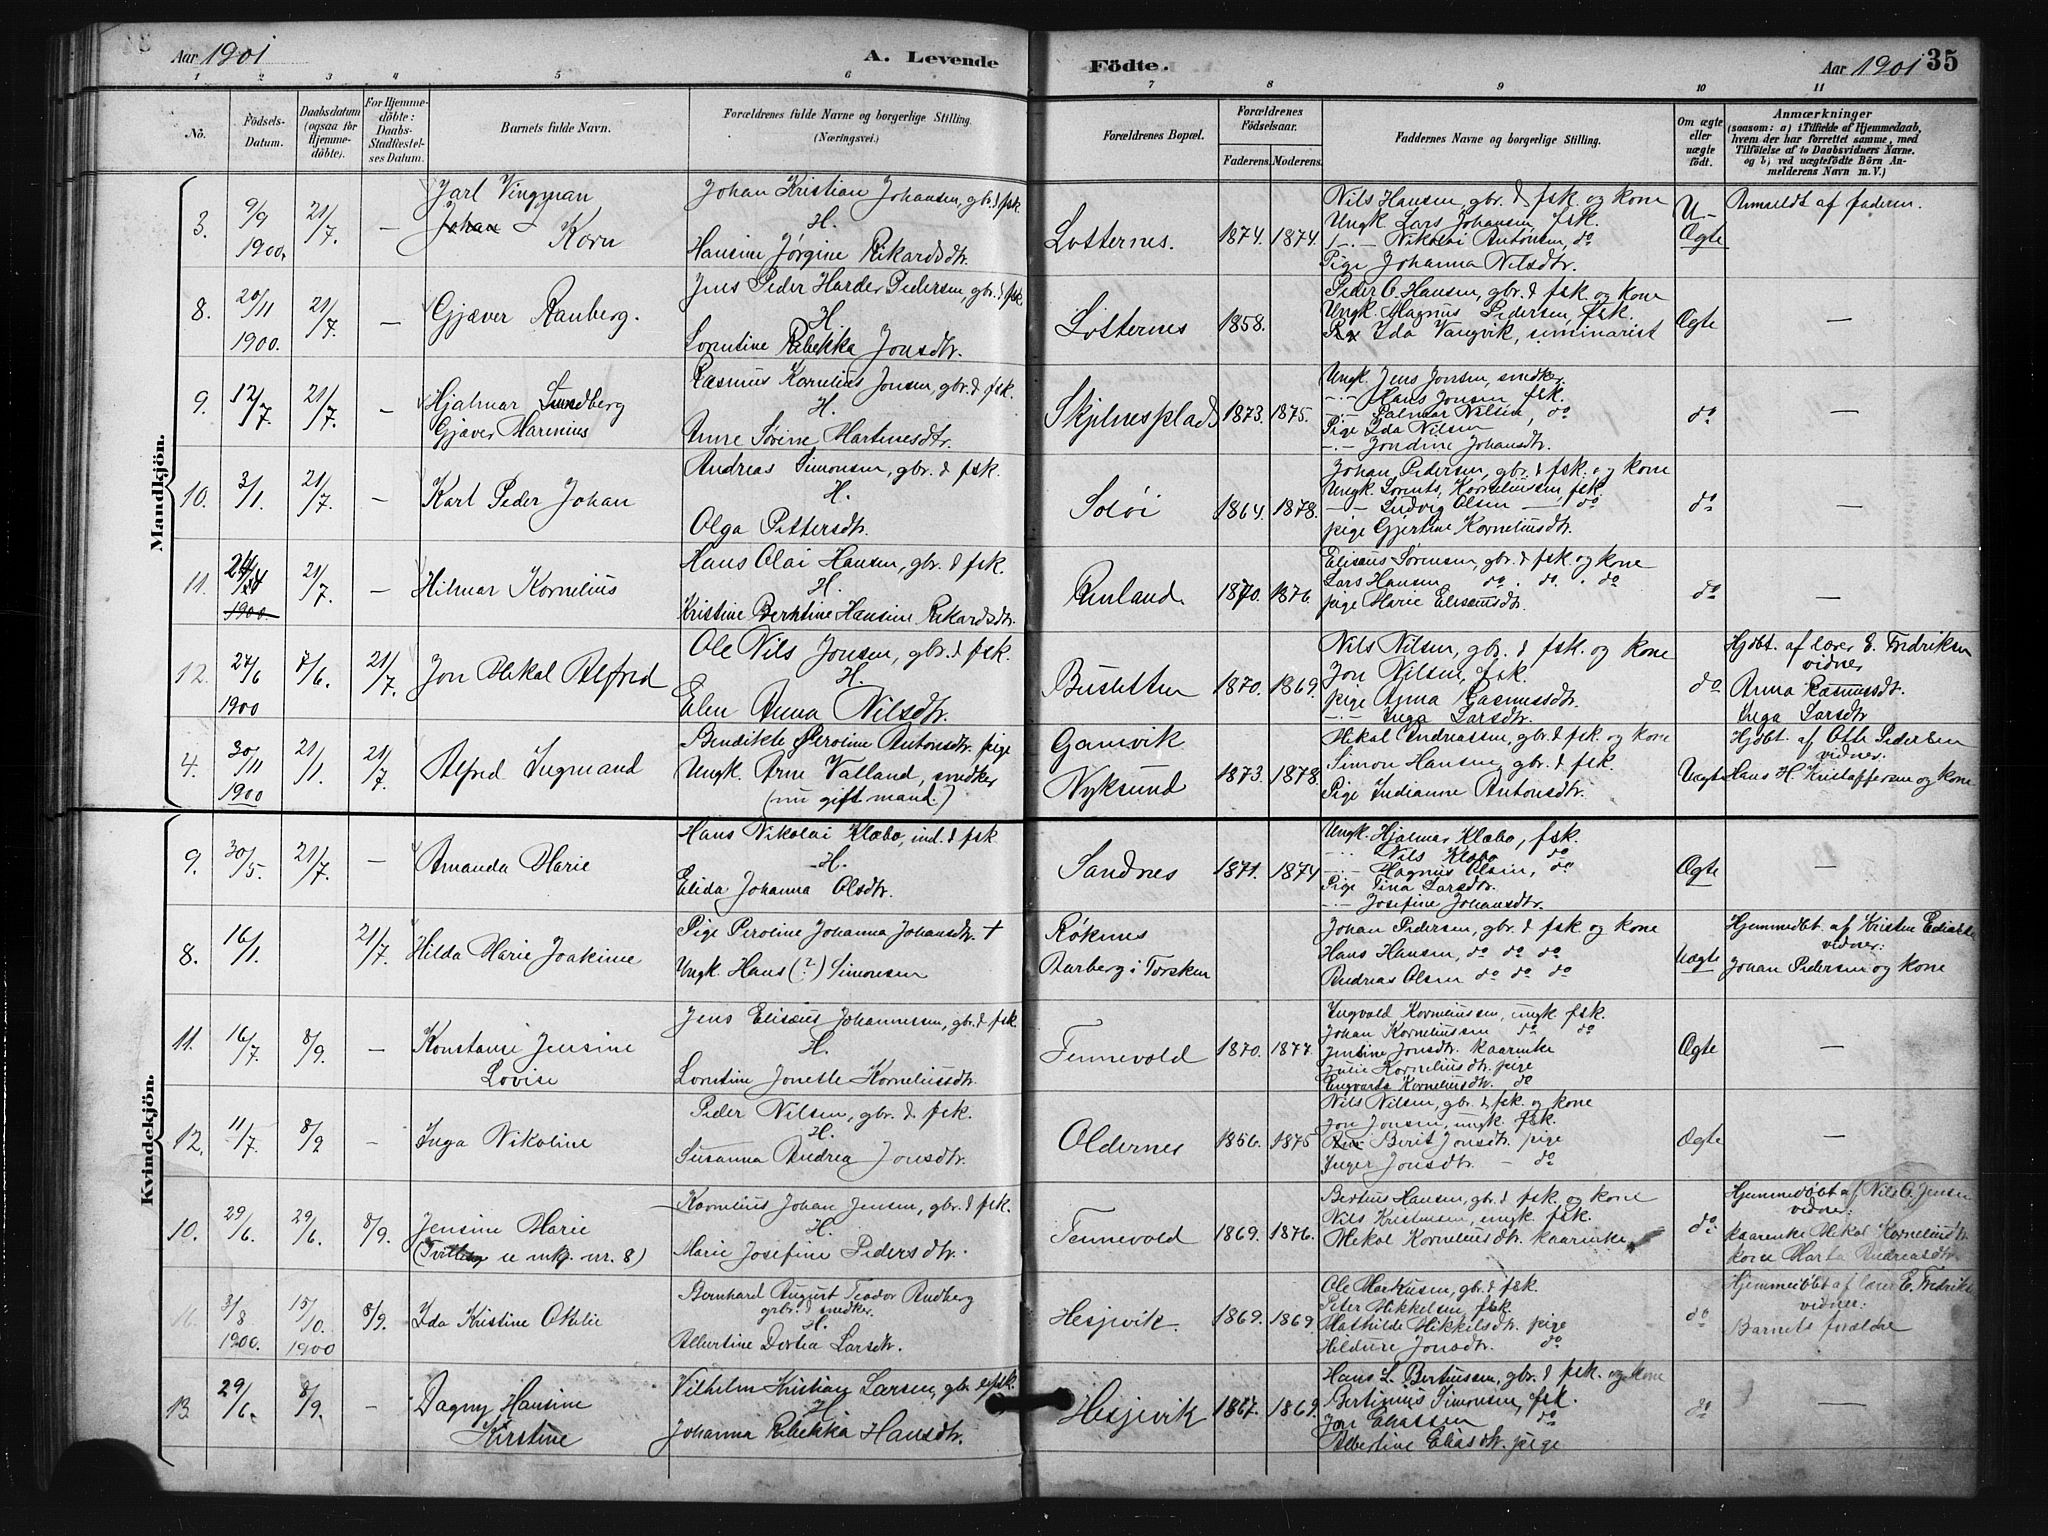 Aar 1901
A. Levende
Födte.
Aar 1901
35
1 2 3 4 5 6 7 8 9 10 11
No.
Födsels-Datum.
Daabsdatum (ogsaa for Hjemmedöbte).
For Hjemmedöbte: Daabs-Stadfæstelses Datum.
Barnets fulde Navn.
Forældrenes fulde Navne og borgerlige Stilling.
(Næringsvei.)
Forældrenes Bopæl.
Forældrenes Födselsaar.
Faderens. Moderens.
Faddernes Navne og borgerlige Stilling.
Om ægte eller uægte födt.
Anmærkninger
(saasom: a) i Tilfælde af Hjemmedaab, hvem der har forrettet samme, med Tilföielse af to Daabsvidners Navne. og b) ved uægtefödte Börn Anmelderens Navn m. V.)
Mandkjön.
3. 9/9 1900. 21/7. —
Jarl Vingman
Johan Korn
Johan Kristian Johansen, gbr. & fsk.
H.
Hansine Jørgine Rikardsdtr.
Lotternes. 1874. 1874.
Nils Hansen, gbr. & fsk. og kone
Ungk. Lars Johansen, fsk.
—·— Nikolai Antonsen, do
Pige Johanna Nilsdtr.
U-Ægte
Anmeldt af faderen.
8. 20/11 1900. 21/7. —
Gjæver Ranberg.
Jens Peder Harder Pedersen, gbr. & fsk.
H.
Lorntine Rebekka Jonsdtr.
Lotternes 1858.
Peder C. Hansen, gbr. & fsk. og kone
Ungk. Magnus Pedersen, fsk.
Ida Vangvik, seminarist
Ægte
—
9. 12/7 21/7. —
Hjalmar Sundberg
Gjæver Marinius
Rasmus Kornelius Jensen, gbr. & fsk.
H.
Anne Sørine Martinesdtr.
Skjelnesplads 1873. 1875.
Ungk. Jens Jensen, smedker.
—·— Hans Jensen fsk.
—·— Palmar Nilsen, do
Pige Ida Nilsen
—·— Jondine Johansdtr.
do
—
10. 3/1. 21/7. —
Karl Peder Johan
Andreas Simonsen, gbr. & fsk.
H.
Olga Pettersdtr.
Soløi 1864. 1878.
Johan Pedersen, gbr. & fsk. og kone
Ungk. Lorents Korneliussen fsk.
— — Ludvig Olsen — do
pige Gjertine Korneliusdtr.
do
—
11. 24/ 1900 21/7. —
Hilmar Kornelius
Hans Olai Hansen, gbr. & fsk.
H.
Kristine Berntine Hansine Rikardsdtr.
Rinland 1870. 1876.
Elisæus Sørensen, gbr. & fsk. og kone
Lars Hansen do. do. do
pige Marie Elisæusdtr.
do
—
12. 27/6 1900 7/6. 21/7.
Jon Mekal Alfred
Ole Nils Jonsen, gbr. & fsk.
H.
Elen Anna Nilsdtr.
Busletten 1870. 1869.
Nils Nilsen, gbr. & fsk. og kone
Jon Nilsen, fsk.
pige Anna Rasmusdtr.
—·— Inga Larsdtr.
do
Hjdbt. af lærer E. Fredriksen
vidner
Anna Rasmusdtr.
Inga Larsdtr
4. 30/11 1900 21/1. 21/7.
Alfred Ingmand
Bendikte Peroline Antonsdtr. pige
Ungk. Arne Valland, smedker
(nu gift mand.)
Gamvik
Nyksund
1873. 1878.
Mekal Andreassen, gbr. & fsk. og kone
Simon Hansen, gbr. & fsk.
Pige Indianne Antonsdtr.
Uægte
Hjdbt. af Otte Pedersen
vidner:
Hans H. Kristoffersen og kone
Kvindekjön.
9. 30/5. 21/7. —
Amanda Marie
Hans Nikolai Klæbo, ind. & fsk
H.
Elida Johanna Olsdtr.
Sandnes 1871. 1874
Ungk. Hjalmar Klæbo, fsk.
—·— Nils Klæbo do
—·— Magnus Olsen, do
Pige Tina Larsdtr.
—·— Josefine Johansdtr.
Ægte
—
8. 16/1. 21/7.
Hilda Marie Joakime
Pige Peroline Johanna Johansdtr. +
Ungk. Hans (?) Simonsen
Røknes
Aarberg i Torsken
Johan Pedersen, gbr. & fsk. og kone
Hans Hansen, do do do
Andreas Olsen do do do
Uægte
Hjemmedbt. af Kristen
vidner:
Johan Pedersen og kone
11. 16/7. 8/9. —
Konstanse Jensine
Lovise
Jens Elisæus Johannessen, gbr. & fsk.
H.
Lorntine Jonette Korneliusdtr.
Tennevold 1870. 1877.
Ingvald Korneliussen, ungk fsk.
Johan Korneliussen do do
Jensine Jonsdtr. kaarenke
Julie Korneliusdtr. pige
Engvarda Korneliusdtr. do
Ægte
—
12. 11/7. 8/9 —
Inga Nikoline
Peder Nilsen, gbr. & fsk.
H.
Susanna Andrea Jonsdtr.
Oldernes 1856. 1875
Nils Nilsen, gbr. & fsk. og kone
Jon Jonsen, ungk. fsk.
Berit Jonsdtr. pige
Inger Jonsdtr. — do
Ægte
—
10. 29/6. 29/6. 8/9.
Jensine Marie
(Tvilling e mkj. nr. 8)
Kornelius Johan Jensen, gbr. & fsk.
H.
Marie Josefine Pedersdtr.
Tennevold 1869. 1876.
Bertius Hansen, gbr. & fsk. og kone
Nils Kristensen, ungk. fsk.
Mekal Korneliusdtr. kaarenke
do.
Hjemmedöbt af Nils O. Jensen
vidner:
kaarenke Mekal Korneliusdtr
kone Marta Andreasdtr
3/8 1900. 15/10. 1900 8/9.
Ida Kristine Otelie
Bernhard August Teodor Rudberg
gbr. & smedker.
H.
Albertine Dortea Larsdtr.
Hesjevik. 1869. 1869.
Ole Markusen, gbr. & fsk.
Peter Mikkelsen, fsk.
Mathilde Mikkelsdtr. pige
Hildure Jonsdtr. do
do
Hjemmedöbt af lærer E. Fredriks
vidner:
Barnets forældre
13. 29/6. 8/9. —
Dagny Hansine
Kirstine
Vilhelm Kristian Larsen, gbr. & fsk.
H.
Johanna Rebekka Hansdtr.
Hesjevik 1867. 1869.
Hans L. Bertiussen, gbr. & fsk. og kone
Bertinius Simonsen, fsk.
Jon Eliassen do
Albertine Eliasdtr. pige
do
—